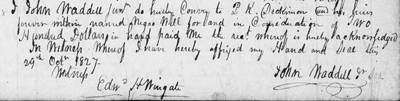 I John Waddell Junr do hereby Convey to P. K. Dickinson and his heirs
forever within named Negro Will for and in Consideration of Two
Hundred Dollars in hand paid Me the rect. whereof is hereby acknowledged
In Witness Whereof I have hereby affixed my Hand and Seal this
29th Octr. 1827.
Witness
John Waddell Jr Seal
Edwd. H Wingate